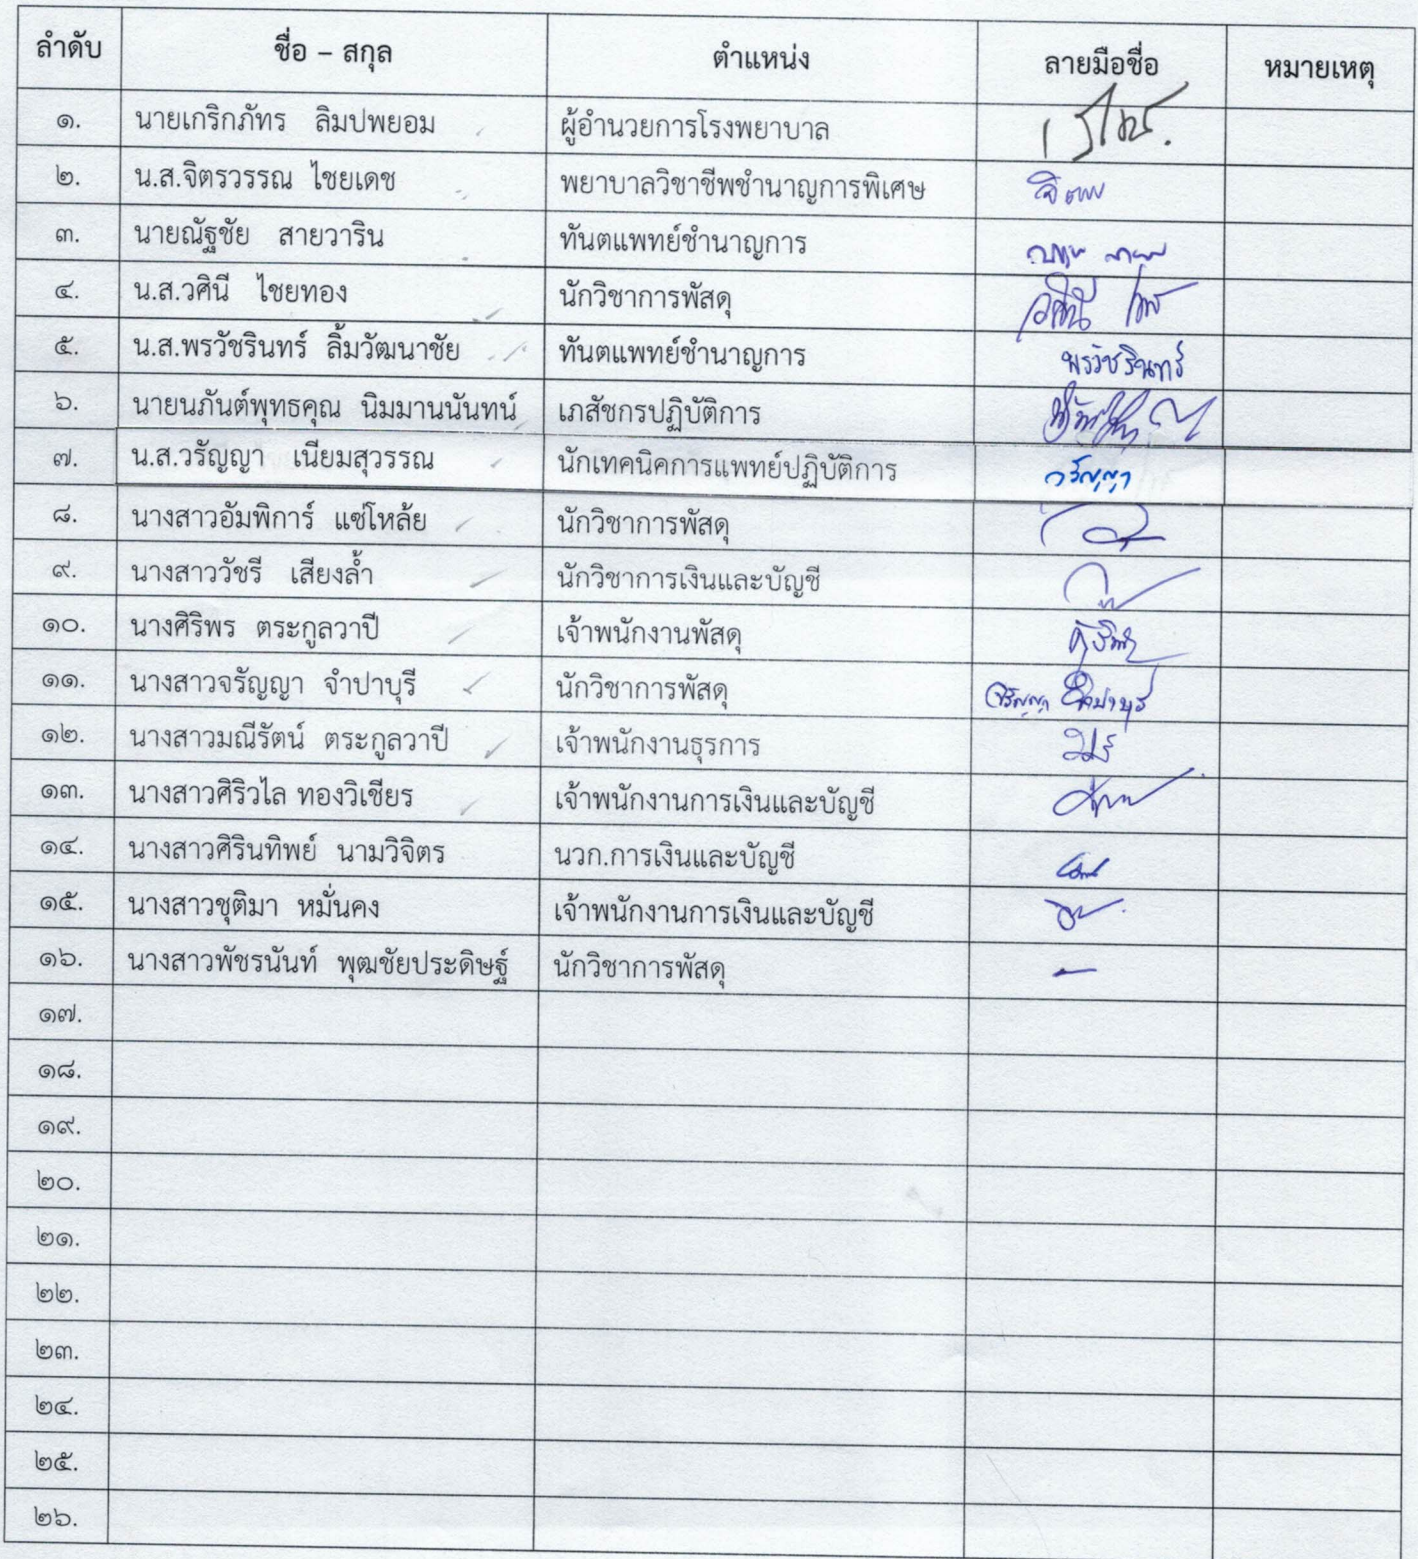 ลำดับ ชื่อ – สกุล ตำแหน่ง ลายมือชื่อ หมายเหตุ
๑. นายเกริกภัทร ลิมปพยอม ผู้อำนวยการโรงพยาบาล
๒. น.ส.จิตรวรรณ ไชยเดช พยาบาลวิชาชีพชำนาญการพิเศษ
๓. นายณัฐชัย สายวาริน ทันตแพทย์ชำนาญการ
๔. น.ส.วศินี ไชยทอง นักวิชาการพัสดุ
๕. น.ส.พรวัชรินทร์ ลิ้มวัฒนาชัย ทันตแพทย์ชำนาญการ พรวัชรินทร์
๖. นายนภันต์พุทธคุณ นิมมานนันทน์ เภสัชกรปฏิบัติการ
๗. น.ส.วรัญญา เนียมสุวรรณ นักเทคนิคการแพทย์ปฏิบัติการ วรัญญา
๘. นางสาวอัมพิการ์ แซ่โหล้ย นักวิชาการพัสดุ
๙. นางสาววัชรี เสียงล้ำ นักวิชาการเงินและบัญชี
๑๐. นางศิริพร ตระกูลวาปี เจ้าพนักงานพัสดุ
๑๑. นางสาวจรัญญา จำปาบุรี นักวิชาการพัสดุ จรัญญา จำปาบุรี
๑๒. นางสาวมณีรัตน์ ตระกูลวาปี เจ้าพนักงานธุรการ
๑๓. นางสาวศิริวไล ทองวิเชียร เจ้าพนักงานการเงินและบัญชี
๑๔. นางสาวศิรินทิพย์ นามวิจิตร นวก.การเงินและบัญชี
๑๕. นางสาวชุติมา หมั่นคง เจ้าพนักงานการเงินและบัญชี
๑๖. นางสาวพัชรนันท์ พุฒชัยประดิษฐ์ นักวิชาการพัสดุ
๑๗.
๑๘.
๑๙.
๒๐.
๒๑.
๒๒.
๒๓.
๒๔.
๒๕.
๒๖.